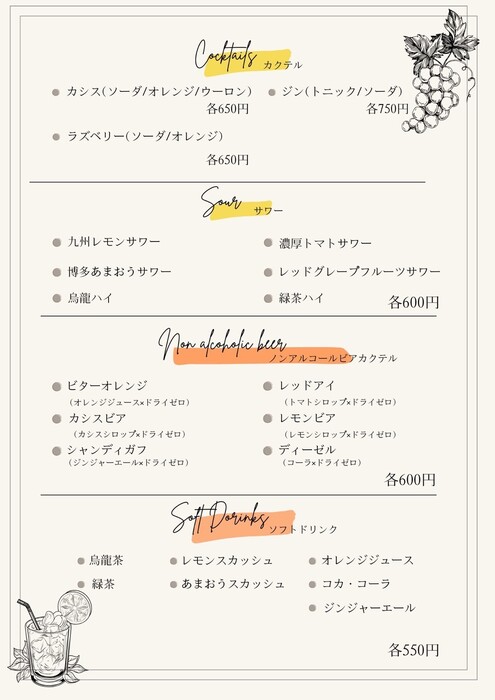 Cocktails カクテル
カシス(ソーダ/オレンジ/ウーロン)
各650円
ジン(トニック/ソーダ)
各750円
ラズベリー(ソーダ/オレンジ)
各650円
Sour サワー
九州レモンサワー
濃厚トマトサワー
博多あまおうサワー
レッドグレープフルーツサワー
烏龍ハイ
緑茶ハイ
各600円
Non alcoholic beer ノンアルコールビアカクテル
ビターオレンジ
(オレンジジュース×ドライゼロ)
レッドアイ
(トマトシロップ×ドライゼロ)
カシスビア
(カシスシロップ×ドライゼロ)
レモンビア
(レモンシロップ×ドライゼロ)
シャンディガフ
(ジンジャーエール×ドライゼロ)
ディーゼル
(コーラ×ドライゼロ)
各600円
Soft Dorinks ソフトドリンク
烏龍茶
レモンスカッシュ
オレンジジュース
緑茶
あまおうスカッシュ
コカ・コーラ
ジンジャーエール
各550円